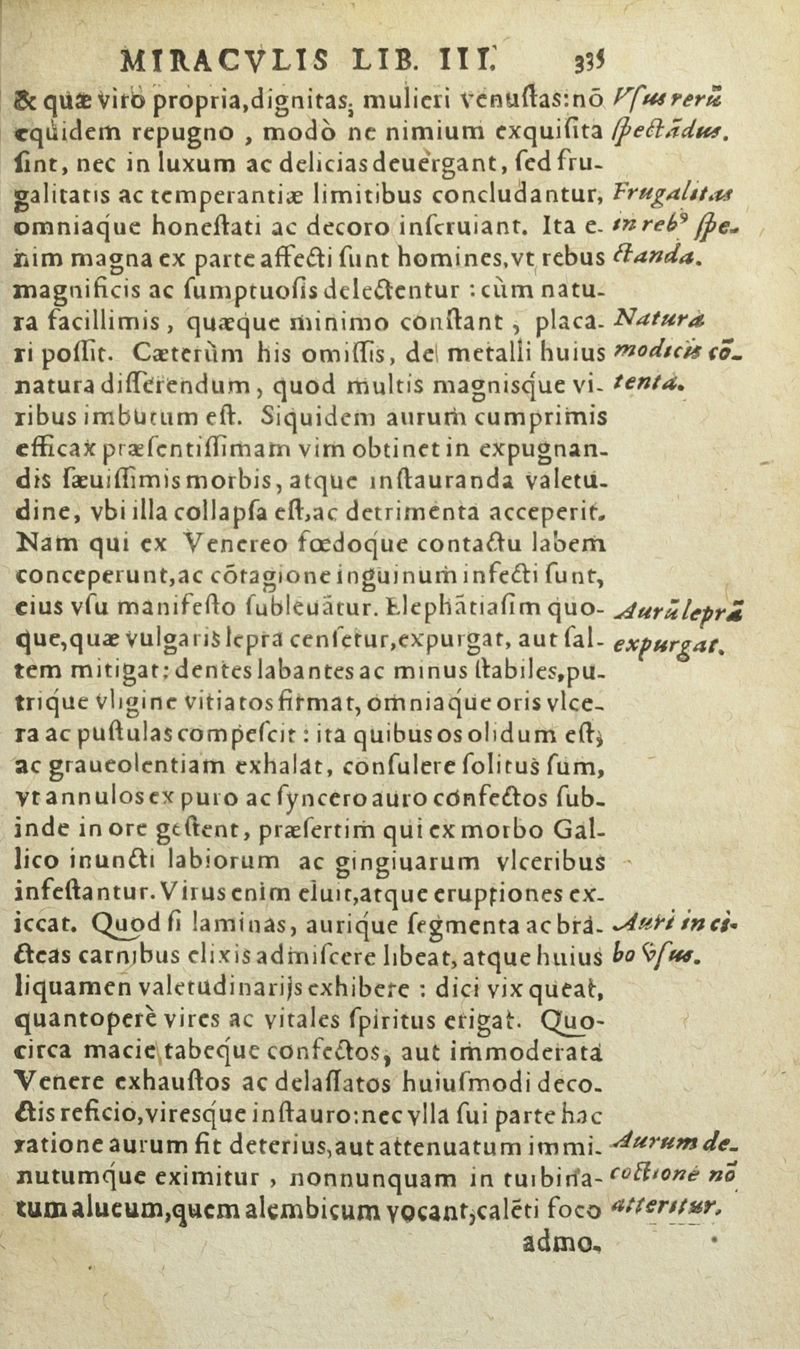 MIRACVLIS LIB. III. 335
& quæ viro propria, dignitas, mulieri venuſtas: nō
equidem repugno, modò ne nimium exquiſita
ſint, nec in luxum ac delicias deuergant, ſed fru-
galitatis ac temperantiæ limitibus concludantur,
omniaque honeſtati ac decoro inſeruiant. Ita e-
nim magna ex parte affecti ſunt homines, vt rebus
magnificis ac ſumptuoſis delectentur: cùm natu-
ra facillimis, quæque minimo conſtant, placa-
ri poſſit. Cæterùm his omiſſis, de metalli huius
natura diſſerendum, quod multis magnisque vi-
ribus imbutum eſt. Siquidem aurum cumprimis
efficax præſentiſſimam vim obtinet in expugnan-
dis ſæuiſſimis morbis, atque inſtauranda valetu-
dine, vbi illa collapſa eſt, ac detrimenta acceperit.
Nam qui ex Venereo fœdoque contactu labem
conceperunt, ac cōtagione inguinum infecti ſunt,
eius vſu manifeſto ſubleuātur. Elephātiaſim quo-
que, quæ vulgaris lepra cenſetur, expurgat, aut ſal-
tem mitigat: dentes labantes ac minus ſtabiles, pu-
trique vligine vitiatos firmat, omniaque oris vlce-
ra ac puſtulas compeſcit: ita quibus os olidum eſt,
ac graueolentiam exhalat, conſulere ſolitus ſum,
vt annulos ex puro ac ſyncero auro confectos ſub-
inde in ore geſtent, præſertim qui ex morbo Gal-
lico inuncti labiorum ac gingiuarum vlceribus
infeſtantur. Virus enim eluit, atque eruptiones ex-
iccat. Quod ſi laminas, aurique ſegmenta ac bra-
cteas carnibus elixis admiſcere libeat, atque huius
liquamen valetudinarijs exhibere: dici vix queat,
quantoperè vires ac vitales ſpiritus erigat. Quo-
circa macie, tabeque confectos, aut immoderata
Venere exhauſtos ac delaſſatos huiuſmodi deco-
ctis reficio, viresque inſtauro: nec vlla ſui parte hac
ratione aurum fit deterius, aut attenuatum immi-
nutumque eximitur, nonnunquam in turbina-
tum alueum, quem alembicum vocant, calēti foco
admo-
Vſus rerū
ſpectādus.
Frugalitas
in reb⁹ ſpe-
ctanda.
Natura
modicis cō-
tenta.
Aurū leprā
expurgat.
Auri in ci-
bo vſus.
Aurum de-
coctione nō
atteritur.